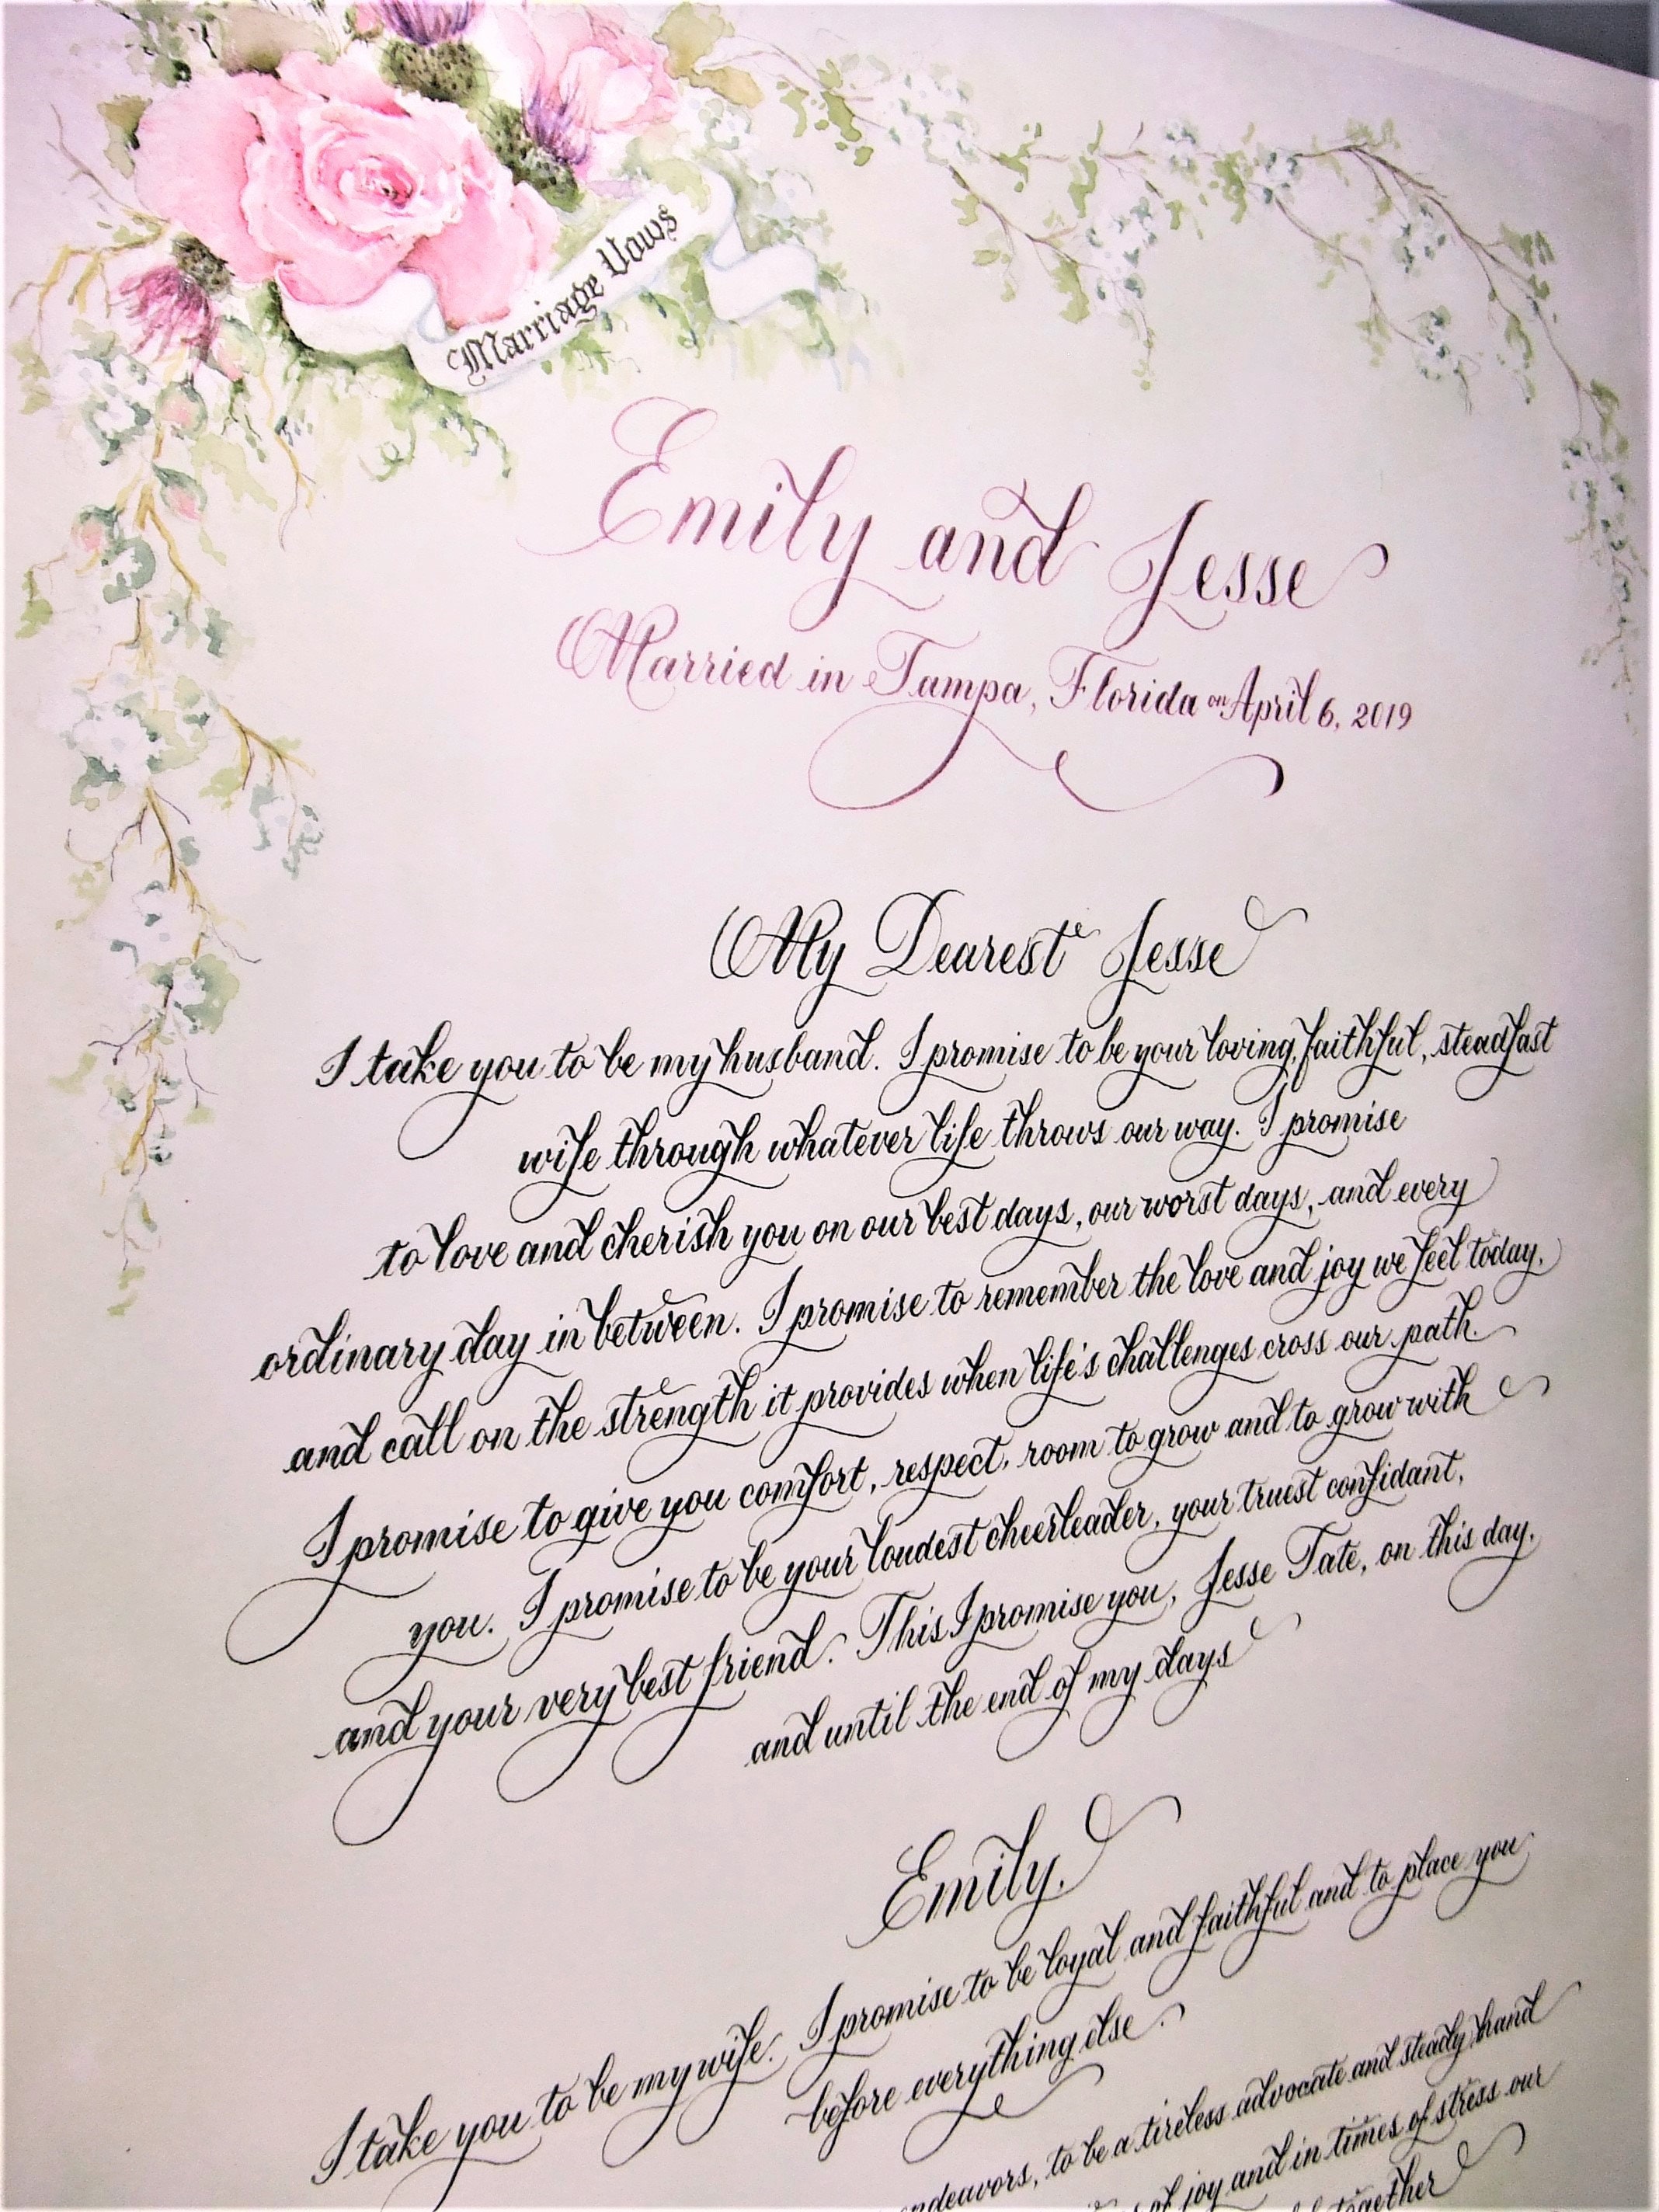 Marriage Vows
Emily and Jesse
Married in Tampa, Florida on April 6, 2019
My Dearest Jesse
I take you to be my husband. I promise to be your loving, faithful, steadfast
wife through whatever life throws our way. I promise
to love and cherish you on our best days, our worst days, and every
ordinary day in between. I promise to remember the love and joy we feel today,
and call on the strength it provides when life's challenges cross our path.
I promise to give you comfort, respect, room to grow and to grow with
you. I promise to be your loudest cheerleader, your truest confidant,
and your very best friend. This I promise you, Jesse Tate, on this day,
and until the end of my days
Emily.
I take you to be my wife. I promise to be loyal and faithful and to place you
before everything else.
endeavors, to be a tireless advocate and steady hand
of joy and in times of stress our
together